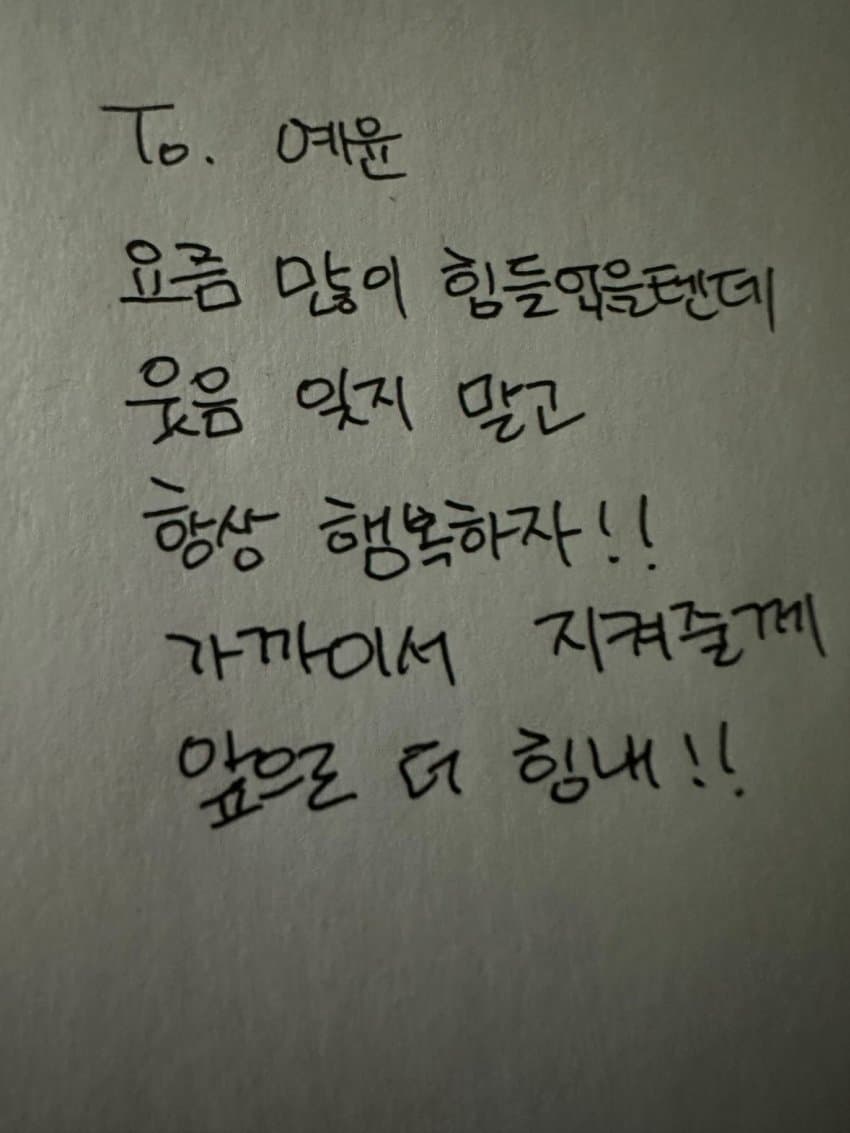 To. 예윤
요즘 많이 힘들었을텐데
웃음 잊지 말고
항상 행복하자!!
가까이서 지켜줄께
앞으로 더 힘내!!